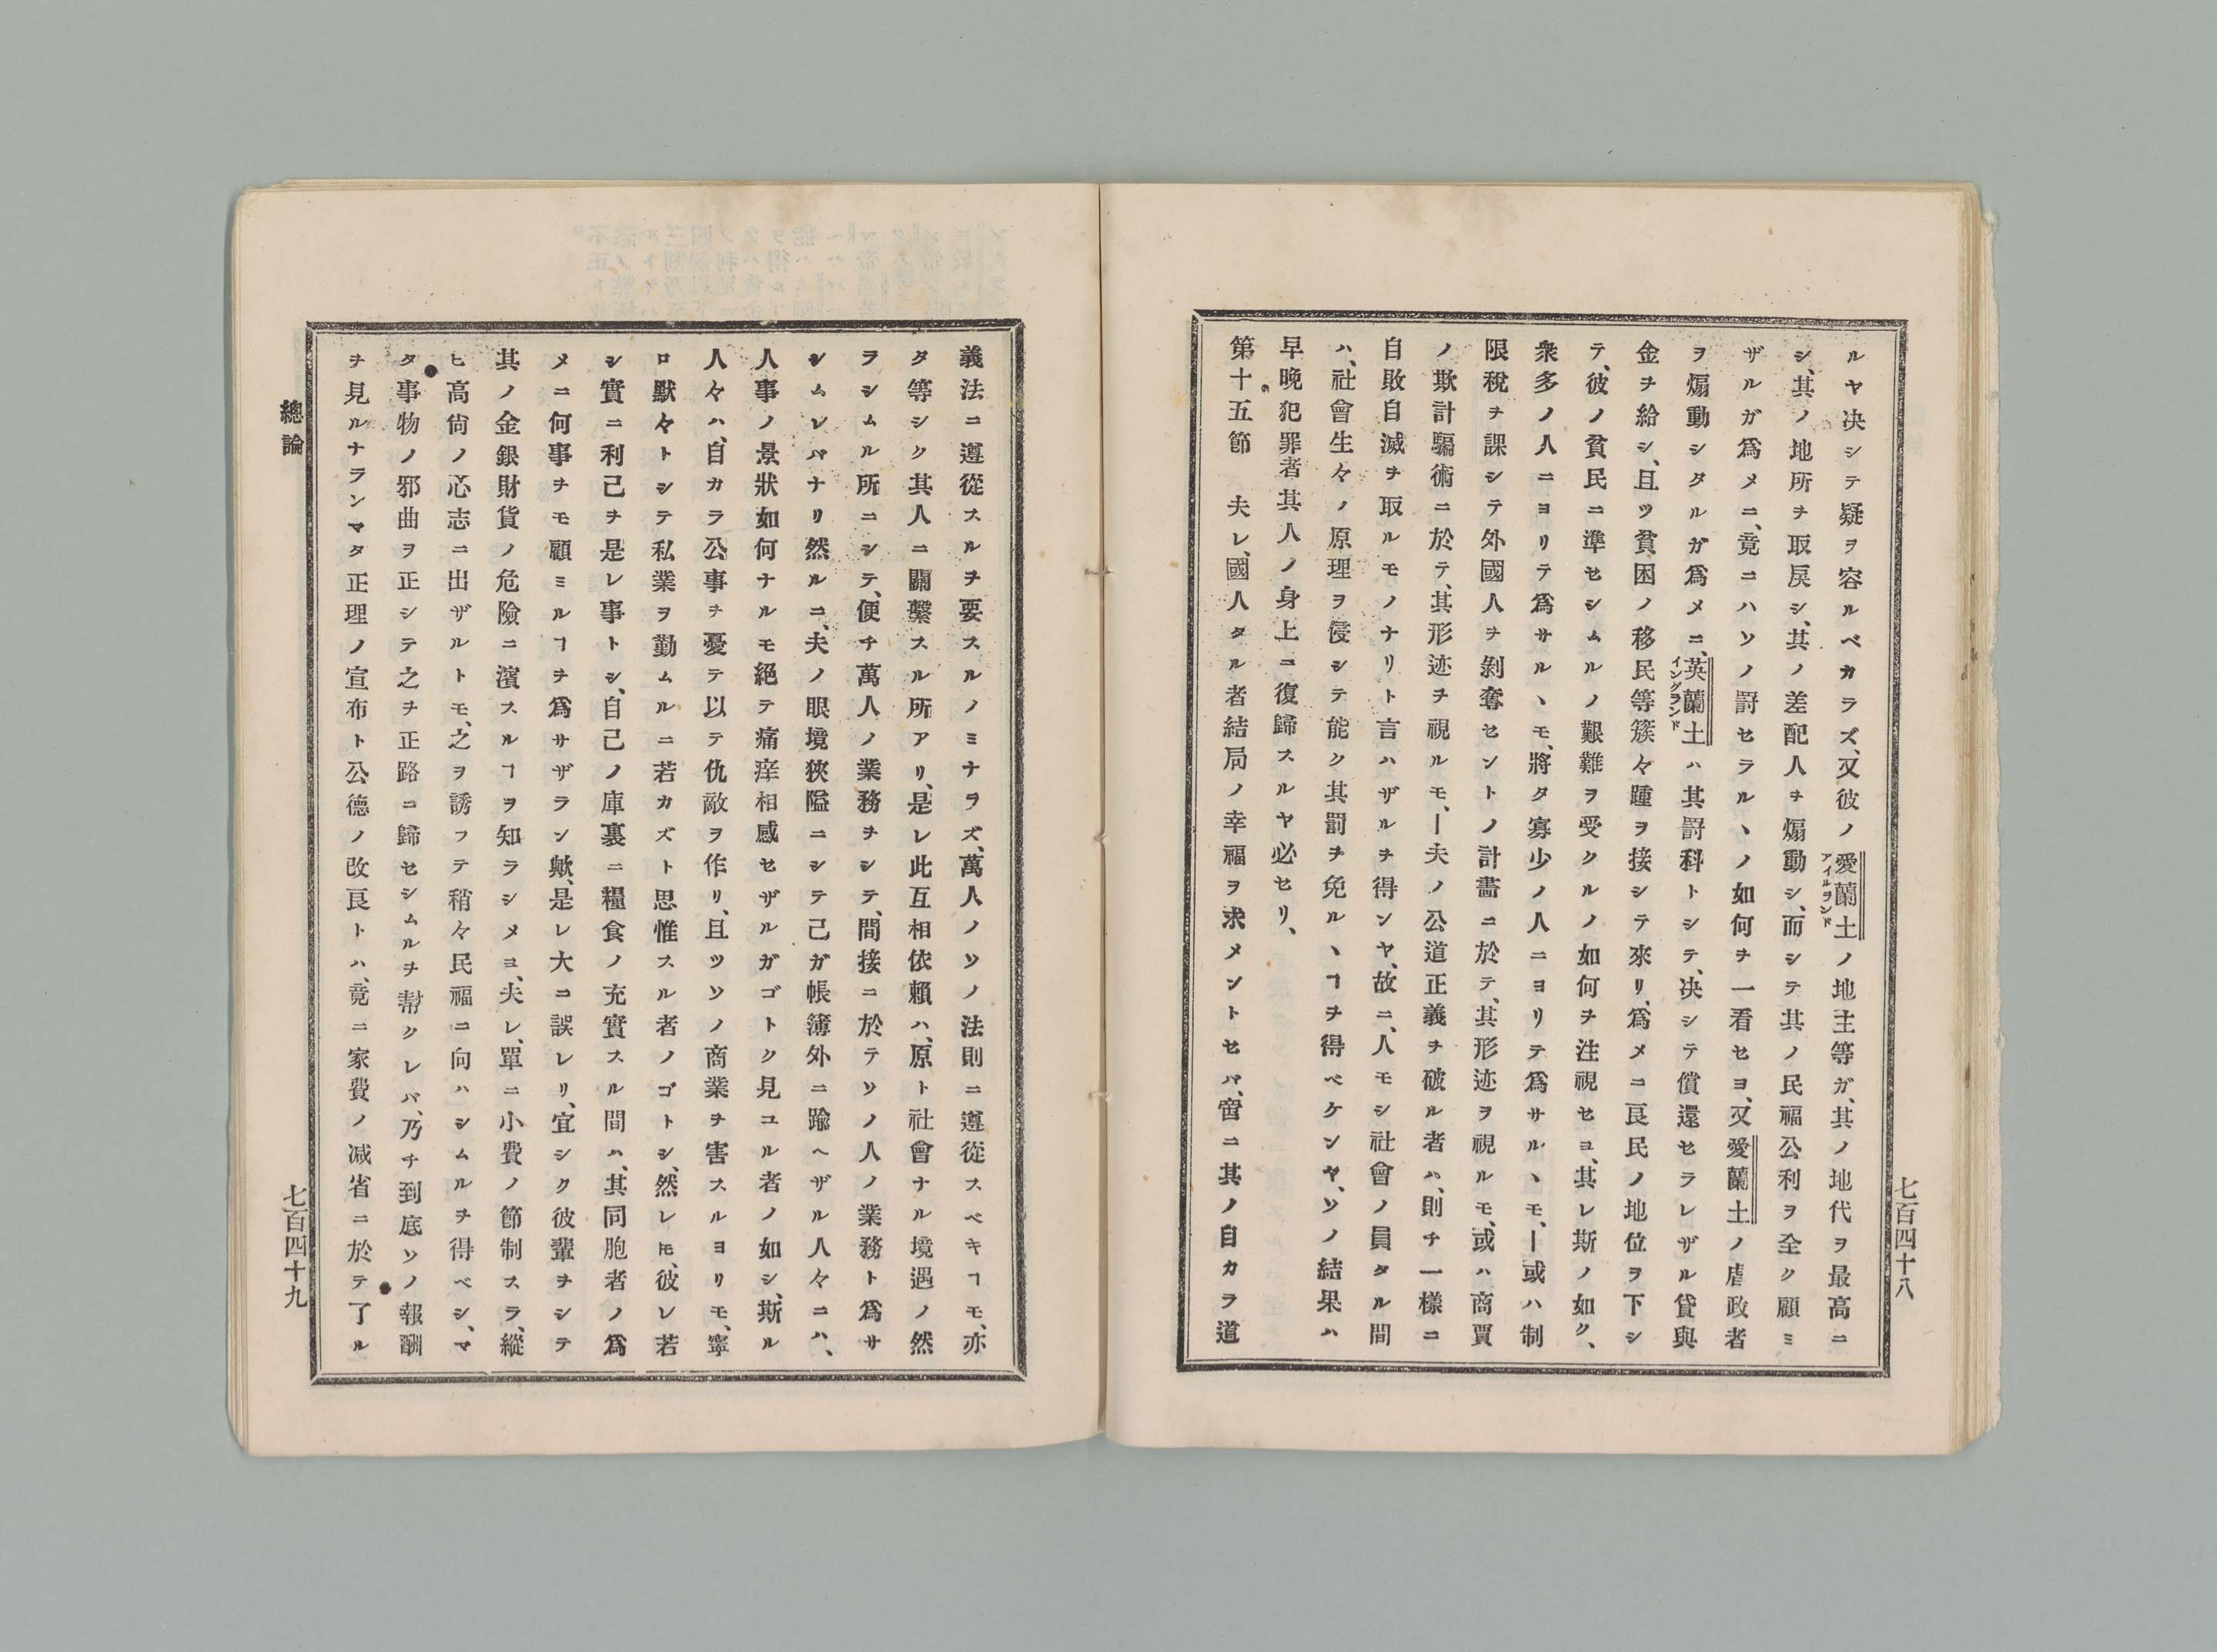 ルヤ决シテ疑ヲ容ルベカラズ、又彼ノ愛蘭土ノ地主等ガ、其ノ地代ヲ最高ニ
アイルヲンド
シ、其ノ地所ヲ取戻シ、其ノ差配人ヲ煽動シ、而シテ其ノ民福公利ヲ全ク顧ミ
ザルガ爲メニ、竟ニハソノ罸セラル丶ノ如何ヲ一看セヨ、又愛蘭土ノ虐政者
ヲ煽動シタルガ爲メニ、英蘭土ハ其罸科トシテ、决シテ償還セラレザル貸與
イングランド
金ヲ給シ、且ツ貧困ノ移民等簇々踵ヲ接シテ來リ、爲メニ良民ノ地位ヲ下シ
テ、彼ノ貧民ニ準セシムルノ艱難ヲ受クルノ如何ヲ注視セヨ、其レ斯ノ如ク、
衆多ノ人ニヨリテ爲サル丶モ、將タ寡少ノ人ニヨリテ爲サル丶モ、ー或ハ制
限稅ヲ課シテ外國人ヲ剝奪セントノ計畵ニ於テ、其形迹ヲ視ルモ、或ハ商賈
ノ欺計騙術ニ於テ、其形迹ヲ視ルモ、ー夫ノ公道正義ヲ破ル者ハ、則チ一樣ニ
自敗自滅ヲ取ルモノナリト言ハザルヲ得ンヤ、故ニ、人モシ社會ノ員タル間
ハ、社會生々ノ原理ヲ侵シテ能ク其罰ヲ免ル丶ヿヲ得ベケンヤ、ソノ結果ハ
早晩犯罪者其人ノ身上ニ復歸スルヤ必セリ、
第十五節　夫レ、國人タル者結局ノ幸福ヲ求メントセバ、啻ニ其ノ自カラ道
七百四十八
義法ニ遵從スルヲ要スルノミナラズ、萬人ノソノ法則ニ遵從スベキヿモ、亦
タ等シク其人ニ關繫スル所アリ、是レ此互相依賴ハ、原ト社會ナル境遇ノ然
ラシムル所ニシテ、便チ萬人ノ業務ヲシテ、間接ニ於テソノ人ノ業務ト爲サ
シムレバナリ然ルニ、夫ノ眼境狹隘ニシテ己ガ帳簿外ニ踰ヘザル人々ニハ、
人事ノ景狀如何ナルモ絕テ痛痒相感セザルガゴトク見ユル者ノ如シ、斯ル
人々ハ、自カラ公事ヲ憂テ以テ仇敵ヲ作リ、且ツソノ商業ヲ害スルヨリモ、寧
ロ默々トシテ私業ヲ勤ムルニ若カズト思惟スル者ノゴトシ、然レ𪜈、彼レ若
シ實ニ利己ヲ是レ事トシ、自己ノ庫裏ニ糧食ノ充實スル間ハ、其同胞者ノ爲
メニ何事ヲモ顧ミルヿヲ爲サザラン歟、是レ大ニ誤レリ、宜シク彼輩ヲシテ
其ノ金銀財貨ノ危險ニ濱スルヿヲ知ラシメヨ、夫レ、單ニ小費ノ節制スラ、縱
ヒ高尙ノ心志ニ出ザルトモ、之ヲ誘フテ稍々民福ニ向ハシムルヲ得ベシ、マ
タ事物ノ邪曲ヲ正シテ之ヲ正路ニ歸セシムルヲ幇クレバ、乃チ到底ソノ報酬
ヲ見ルナランマタ正理ノ宣布ト公德ノ改良トハ、竟ニ家費ノ减省ニ於テ了ル
總論
七百四十九